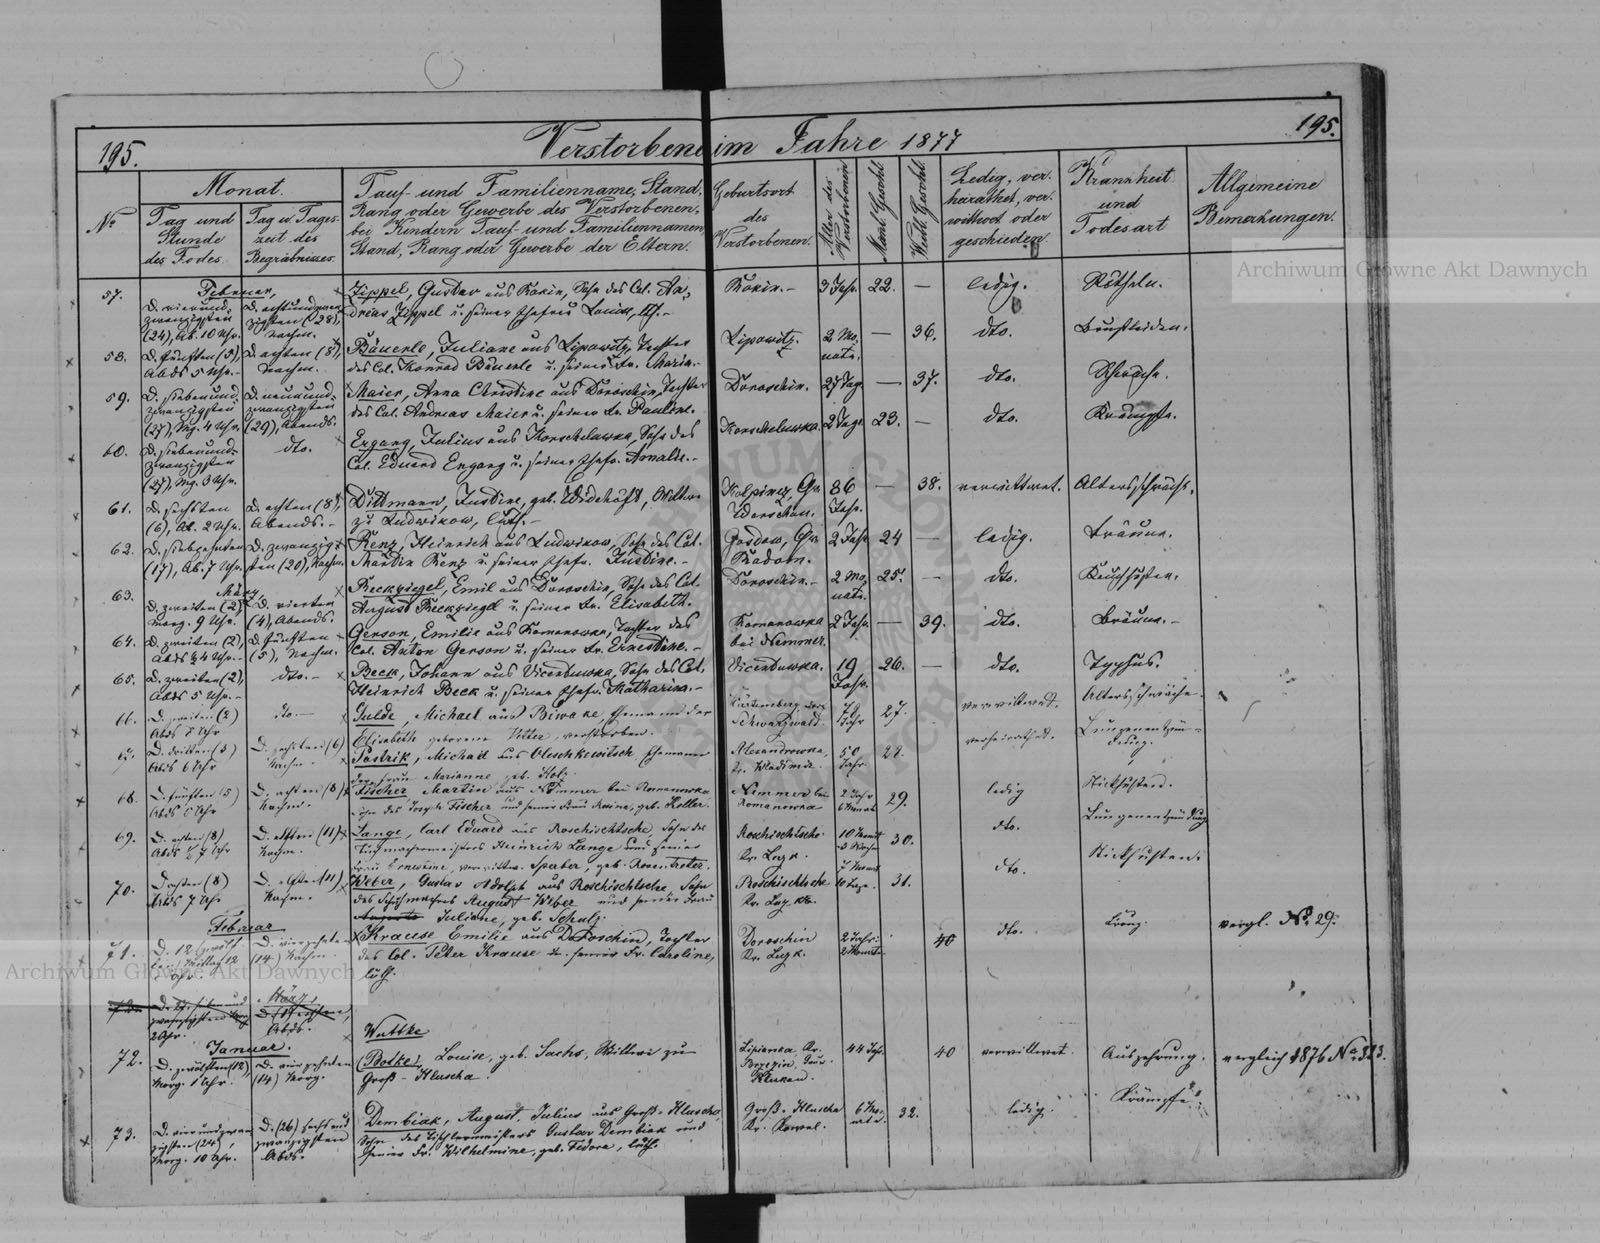 195.
Verstorbene im Jahre 1877
195.
No
Monat.
Tag und
Stunde
des Todes.
Tag u. Tages-
zeit des
Begräbnisses.
Tauf- und Familienname, Stand,
Rang oder Gewerbe des Verstorbenen,
bei Kindern Tauf- und Familiennamen,
Stand, Rang oder Gewerbe der Eltern.
Geburtsort
des
Verstorbenen.
Alter der
Verstorbenen
Männl. Geschl.
Weibl. Geschl.
Ledig, ver-
heirathet, ver-
wittwet oder
geschieden.
Krankheit
und
Todesart
Allgemeine
Bemerkungen.
57.
Februar,
D. vierund-
zwanzigsten
(24), Ab. 10 Uhr.
D. achtundzwan-
zigsten (28),
Nachm.
Zippel, Gustav aus Rokin, Sohn des Col. An-
dreas Zippel u. seiner Ehefrau Louise,
Rokin.-
3 Jahr.
22.
—
ledig.
Rötheln.
58.
D. fünften (5),
Abds 5 Uhr.-
D. achten (8),
Nachm.
Bäuerle, Juliane aus Lipowitz, Tochter
des Col. Konrad Bäuerle u. seiner Fr. Maria.-
Lipowitz.
2 Mo-
nate.
—
36.
dto.
Brustleiden.
59.
D. siebenund-
zwanzigsten
(27), Mg. 4 Uhr.
D. neunund-
zwanzigsten
(29), Abends.
Maier, Anna Christine aus Doroschin, Tochter
des Col. Andreas Maier u. seiner Fr. Pauline.
Doroschin.
27 Tag.
—
37.
dto.
Schwäche.
60.
D. siebenund-
zwanzigsten
(27), Mg. 3 Uhr.
dto.
Ergang, Julius aus Korscheluwka, Sohn des
Col. Eduard Ergang u. seiner Ehefr. Amalie.-
Korscheluwka.
2 Tage.
23.
—
dto.
Krämpfe.
61.
D. sechsten
(6), Ab. 2 Uhr.
D. achten (8),
Abends.-
Dittmann, Justine, geb. Wittwe
zu Ludwikow, luth.-
Kolpinez, Gr.
Warschau.
86
Jahr.
—
38.
verwittwet.
Altersschwäch.
62.
D. siebzehnten
(17), Ab. 7 Uhr.
D. zwanzig-
sten (20), Nachm.
Renz, Heinrich aus Ludwikow, Sohn des Col.
Martin Renz u. seiner Ehefr. Justine.-
Gr.
Radom.
2 Jahr
24
—
ledig.
Bräune.
63.
März
D. zweiten (2),
morg. 9 Uhr.
D. vierten
(4), Abends.
Reckziegel, Emil aus Doroschin, Sohn des Col.
August Reckziegel u. seiner Fr. Elisabeth.
Doroschin.-
2 Mo-
nate.
25.
—
dto.
Keuchhusten.
64.
D. zweiten (2),
Abds 4 Uhr.-
D. fünften
(5), Nachm.
Gerson, Emilie aus Romanowka, Tochter des
Col. Anton Gerson u. seiner Fr. Ernestine.-
Romanowka
bei Nemmer
2 Jahr
—
39.
dto.
Bräune.-
65.
D. zweiten (2),
Abds 5 Uhr.-
dto.-
Beck, Johann aus Vicentuwka, Sohn des Col.
Heinrich Beck u. seiner Ehefr. Katharina.-
Vicentuwka.
19
Jahr.
26.
—
dto.
Typhus.
66.
D. zweiten (2)
Abds 8 Uhr
dto.—
Gulde, Michael aus Biwake, Ehemann der
Elisabeth geborene verstorben.
Schwarzwald.
Jahr
27.
verwittwet.
Altersschwäche
67.
D. dritten (3)
Abds 6 Uhr
D. sechsten (6)
Nachm.
Pastrik, Michael aus Oleschkewitsch, Ehemann
der Frau Marianne, geb. Holz.
Alexandrowka,
Kr. Wladimir.
50
Jahr
28.
verheirathet.
Lungenentzün-
dung.
68.
D. fünften (5)
Abds 5 Uhr
D. achten (8)
Nachm.
Fischer Martin aus Nemmer bei Romanowka
Sohn des Joseph Fischer und seiner Frau Rosine, geb. Koller.
Nemmer bei
Romanowka
2 Jahr
6 Monat
29.
ledig
Stickhusten.
69.
D. achten (8)
Abds 7 Uhr
D. elften (11)
Nachm.
Lange, Carl Eduard aus Roschischtsche, Sohn des
Tuchmachermeisters Heinrich Lange und seiner
Frau Ernestine, verwittw. Sperber, geb. Rosentreter.
Roschischtsche
Kr. Luzk.
10 Monat
30.
dto.
Lungenentzündung
70.
D. achten (8)
Abds 7 Uhr
D. elften (11)
Nachm.
Weber, Gustav Adolph aus Roschischtsche, Sohn
des Schuhmachers August Weber und seiner Frau
Juliane, geb. Schulz.
Roschischtsche
Kr. Luzk.
7 Monat
10 Tage.
31.
dto.
Stickhusten.
Februar
71.
D. 12 (zwölf-
ten) Mittag 12
Uhr
D. vierzehnten
(14) Nachm.
Krause Emilie aus Doroschin, Tochter
des Col. Peter Krause u. seiner Fr. Caroline,
luth.
Doroschin
Kr. Luzk.
2 Jahr
2 Monate
40
dto.
vergl. No. 29.
März,
Abds.
2 Uhr.
Januar.
72.
D. zwölften (12),
Morg. 1 Uhr.
D. vierzehnten
(14) Morg.
Wuttke
(Botke), Louise, geb. Sachs, Wittwe zu
Groß-Hluscha.
Lipianka, Kr.
44 Jahr.
40
verwittwet.
Auszehrung.
vergleich 1876 No. 323.
73.
D. vierundzwan-
zigsten (24),
Morg. 10 Uhr.
D. (26) sechsund-
zwanzigsten
Abds.
Dembiak, August, Julius aus Groß-Hluscha,
Sohn des Tischlermeisters Gustav Dembiak und
seiner Fr. Wilhelmine, geb. Fedora, luth.
Groß-Hluscha
Kr. Kowel.
6 Mo-
nate.
32.
ledig.
Krämpfe.
Archiwum Główne Akt Dawnych
Archiwum Główne Akt Dawnych